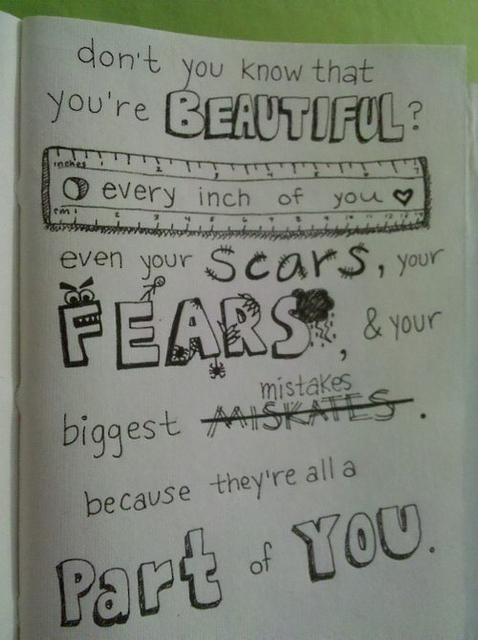 don't you know that
you're BEAUTIFUL?
inches 1 2 3 4 5 6 7
every inch of you
cm 1 2 3 4 5 6 7 8 9 10 11 12 13 14 15 16
even your scars, your
FEARS, & your
mistakes
biggest MISKATES.
because they're all a
Part of YOU.